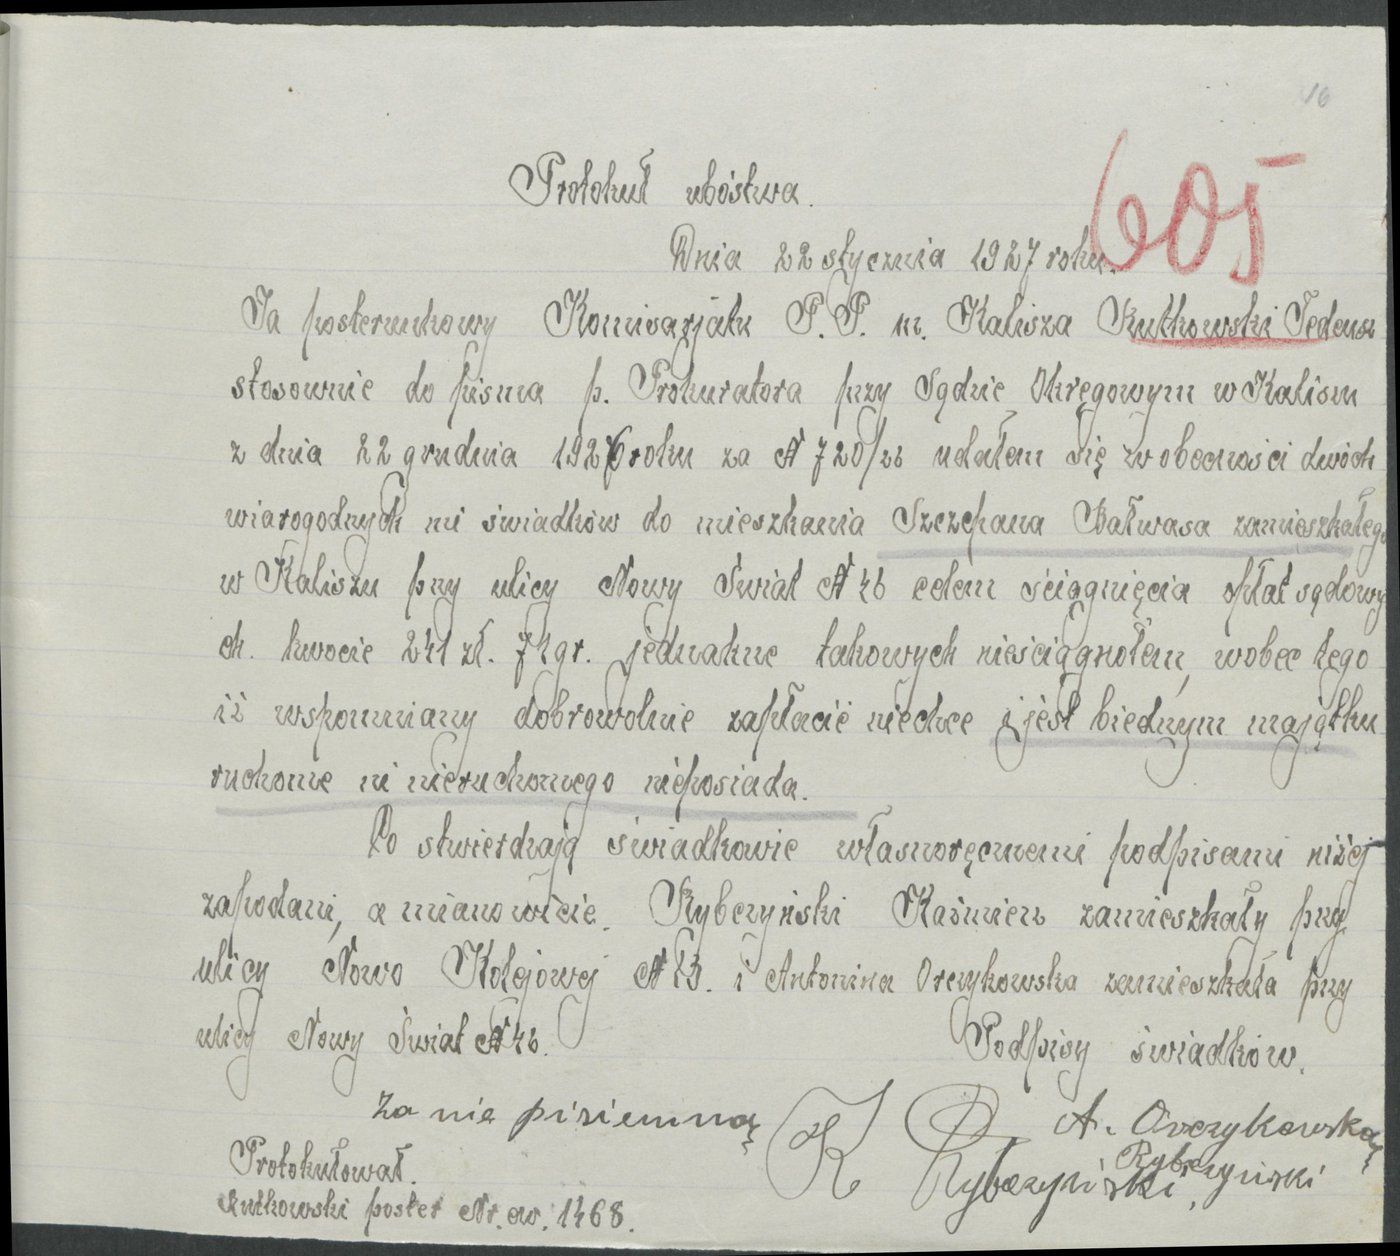 16
605
Protokuł ubóstwa.
Dnia 22 stycznia 1927 roku.
Ja posterunkowy Komisarjatu P.P. m. Kalisza Rutkowski Tedeusz
stosownie do pisma p. Prokuratora przy Sądzie Okręgowym w Kaliszu
z dnia 22 grudnia 1926 roku za № 720/26 udałem się w obecności dwóch
wiarogodnych mi świadków do mieszkania Szczepana Bałwasa zamieszkałego
w Kaliszu przy ulicy Nowy Świat № 46 celem ściągnięcia opłat sądowy
ch. kwocie 241 zł. 74 gr. jednakże takowych nieściągnołem, wobec tego
iż wspomniany dobrowolnie zapłacić niechce i jest biednym majątku
ruchome ni nieruchomego nieposiada.
Co stwierdzają świadkowie własnoręcznemi podpisami niżej
zapodani, a mianowicie. Rybczyński Kaźmierz zamieszkały przy
ulicy Nowo Kolejowej № 13. i Antonina Orczykowska zamieszkała przy
ulicy Nowy Świat № 46.
Podpisy świadków.
Za nie pisiemną A. Orczykowską
K Rybczyński
Rybczyński
Protokułował.
Rutkowski poster Nr. ew. 1468.